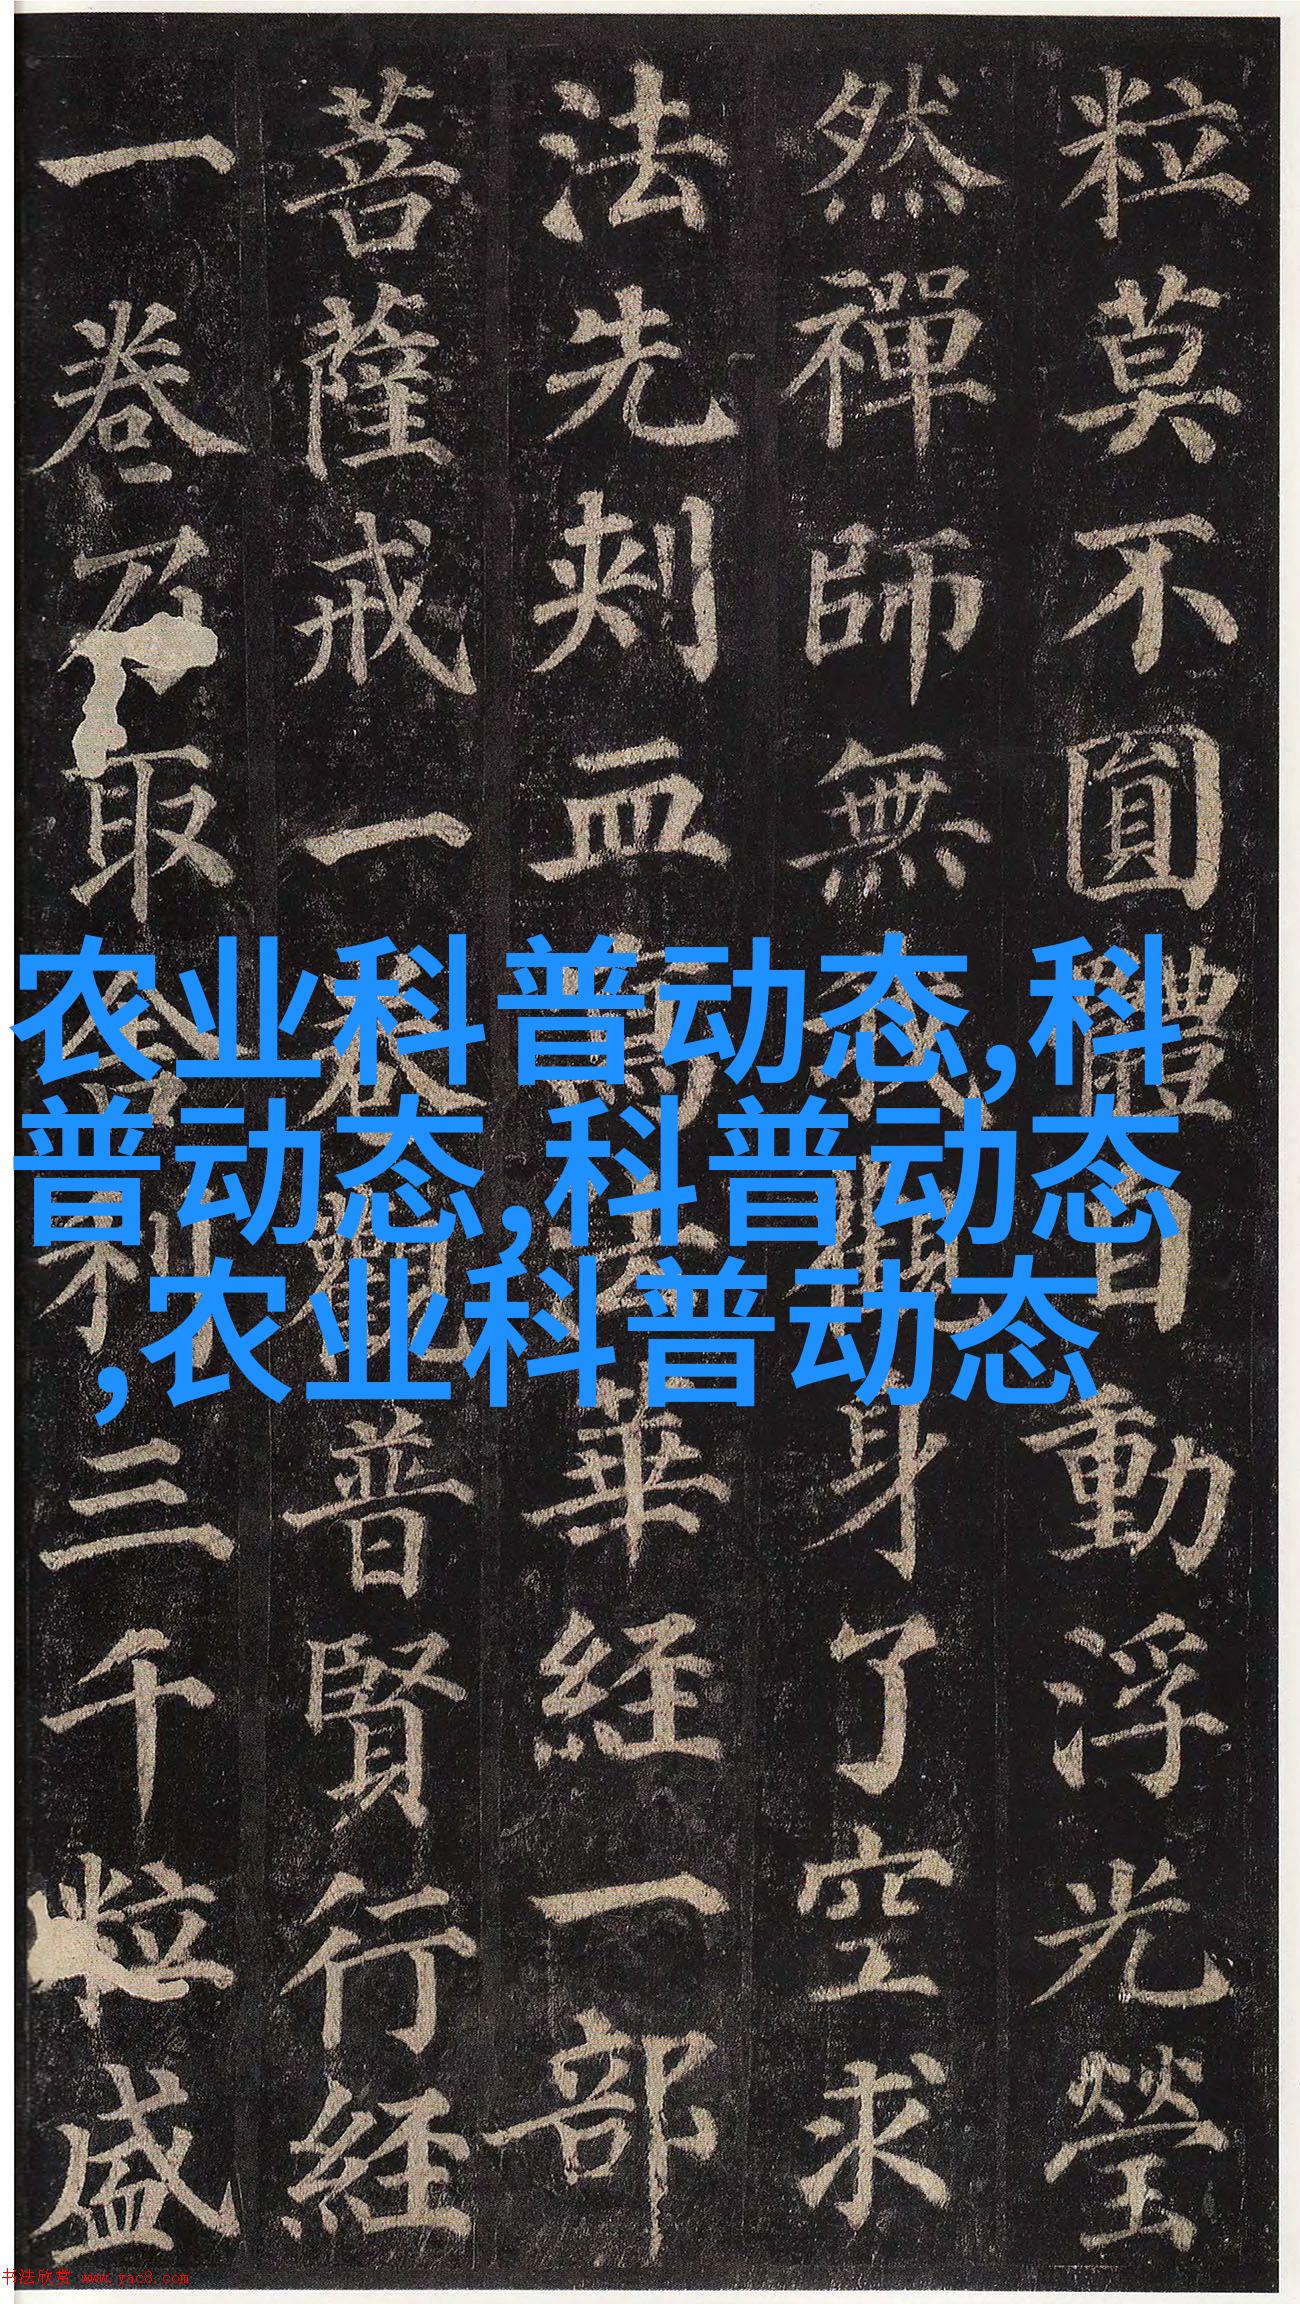 粒莫不圓體自動浮光瑩
然禪師無我觀身了空求
法先刾血寫法華経一部
菩薩戒一卷觀普賢行経
一卷乃取舍利三千粒盛
农业科普动态,科
普动态,科普动态
,农业科普动态
书法欣赏 www.yac8.com